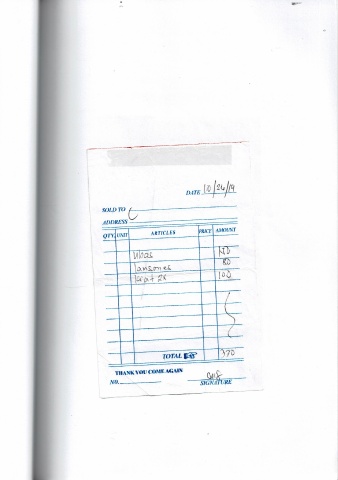 DATE 10/26/19
SOLD TO
ADDRESS
QTY. UNIT ARTICLES PRICE AMOUNT
Ubas
lansones 80
100
TOTAL 330
THANK YOU COME AGAIN
NO.
SIGNATURE